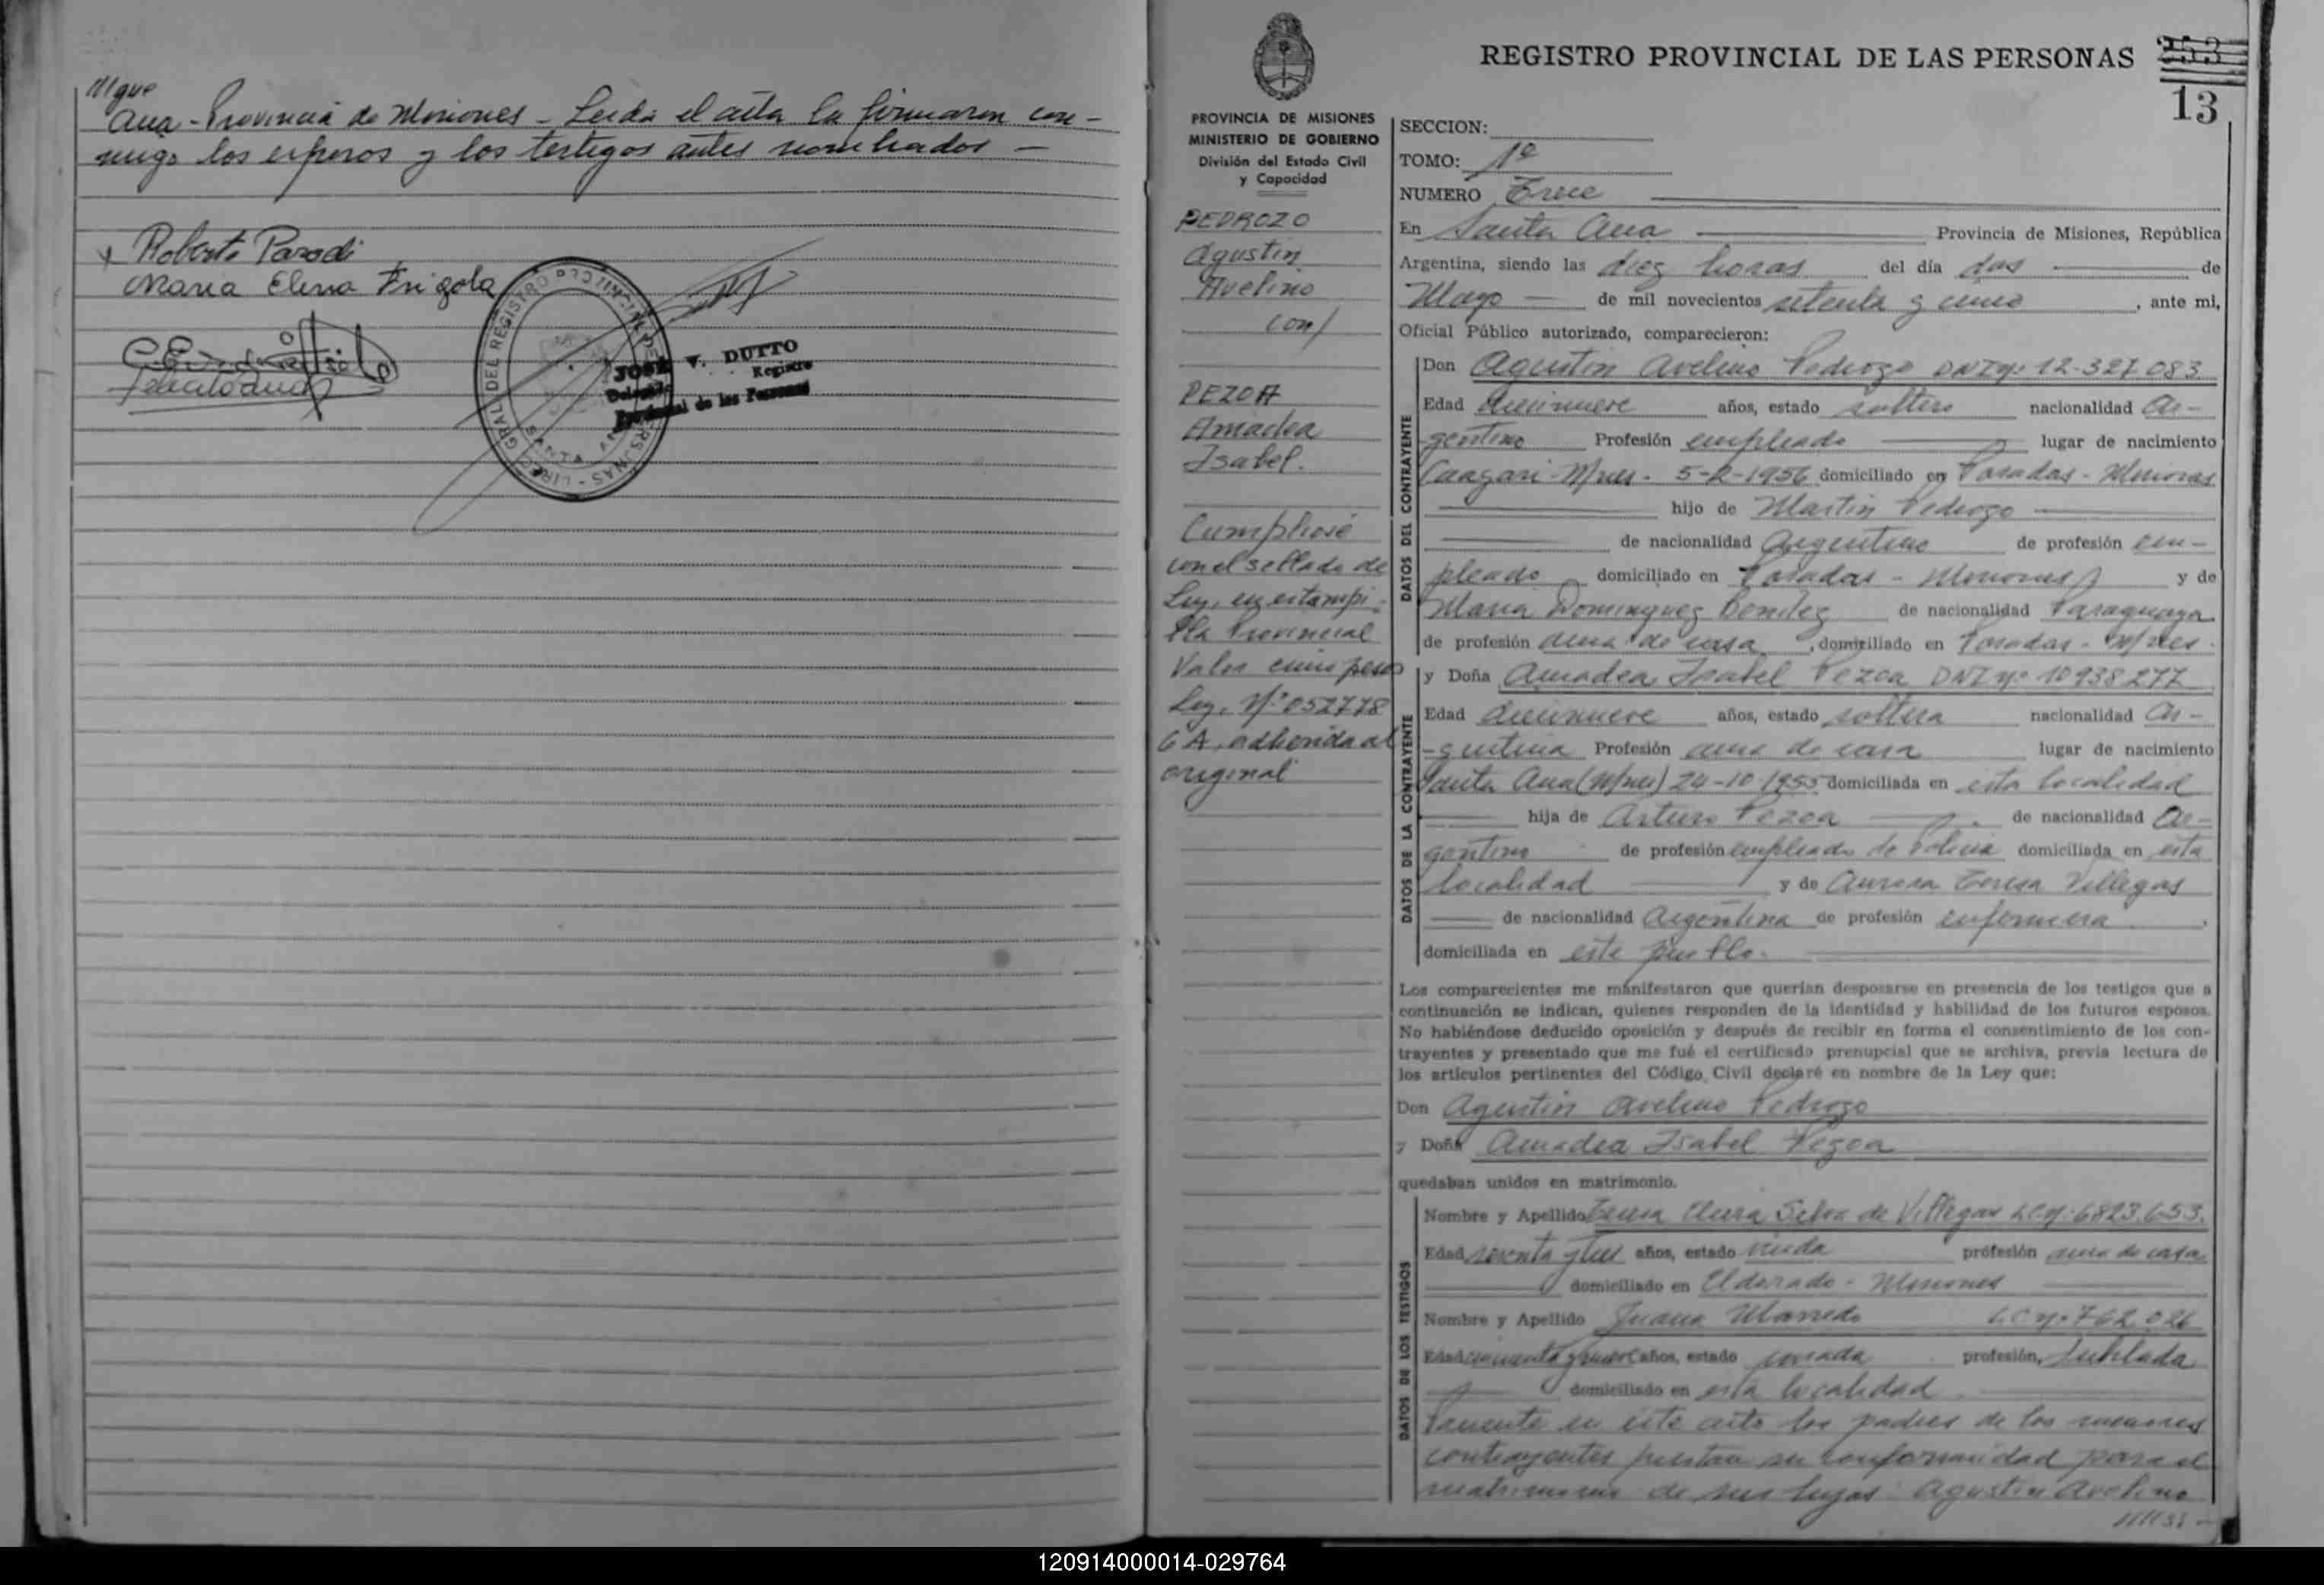 sigue
Ana - Provincia de Misiones - Leida el acta la firmaron con-
migo los esposos y los testigos antes nombrados -
Roberto Parodi
Maria Elena Frigola
JOSE V. DUTTO
Registro
Provincial de las Personas
REGISTRO PROVINCIAL DE LAS PERSONAS
253
13
PROVINCIA DE MISIONES
MINISTERIO DE GOBIERNO
División del Estado Civil
y Capacidad
PEDROZO
Agustin
Avelino
con/
PEZOA
Amadea
Isabel.
Cumpliose
con el sellado de
Ley, en estampi-
lla Provincial
Valor cinco pesos
Ley. Nº 052778
6 A. adherida al
original
SECCION:
TOMO: 1º
NUMERO Trece
En Santa Ana Provincia de Misiones, República
Argentina, siendo las diez horas del día dos de
Mayo de mil novecientos setenta y cinco, ante mi,
Oficial Público autorizado, comparecieron:
DATOS DEL CONTRAYENTE
Don Agustin Avelino Pedrozo DNI Nº 12.327.083
Edad diecinueve años, estado soltero nacionalidad Ar-
gentino Profesión empleado lugar de nacimiento
Caaguri - M/nes - 5-2-1956 domiciliado en Posadas - Misiones
hijo de Martin Pedrozo
de nacionalidad Argentino de profesión em-
pleado domiciliado en Posadas - Misiones y de
Maria Dominguez Benitez de nacionalidad Paraguaya
de profesión ama de casa, domiciliado en Posadas - M/nes.
DATOS DE LA CONTRAYENTE
y Doña Amadea Isabel Pezoa DNI Nº 10938277
Edad diecinueve años, estado soltera nacionalidad Ar-
-gentina Profesión ama de casa lugar de nacimiento
Santa Ana (M/nes) 24-10-1955 domiciliada en esta localidad
hija de Arturo Pezoa de nacionalidad Ar-
gentino de profesión empleado de Policia domiciliada en esta
localidad y de Aurora Teresa Villegas
de nacionalidad Argentina de profesión enfermera
domiciliada en este pueblo.
Los comparecientes me manifestaron que querían desposarse en presencia de los testigos que a
continuación se indican, quienes responden de la identidad y habilidad de los futuros esposos.
No habiéndose deducido oposición y después de recibir en forma el consentimiento de los con-
trayentes y presentado que me fué el certificado prenupcial que se archiva, previa lectura de
los artículos pertinentes del Código Civil declaré en nombre de la Ley que:
Don Agustin Avelino Pedrozo
y Doña Amadea Isabel Pezoa
quedaban unidos en matrimonio.
DATOS DE LOS TESTIGOS
Nombre y Apellido Teresa Clara Silva de Villegas L.C Nº 6823.653.
Edad sesenta y tres años, estado viuda profesión ama de casa
domiciliado en Eldorado - Misiones
Nombre y Apellido Juana L.C Nº 762.026
Edad cincuenta y nueve años, estado casada profesión, Jubilada
domiciliado en esta localidad
Presente en este acto los padres de los menores
contrayentes prestan su conformidad para el
matrimonio de sus hijos Agustin Avelino
120914000014-029764